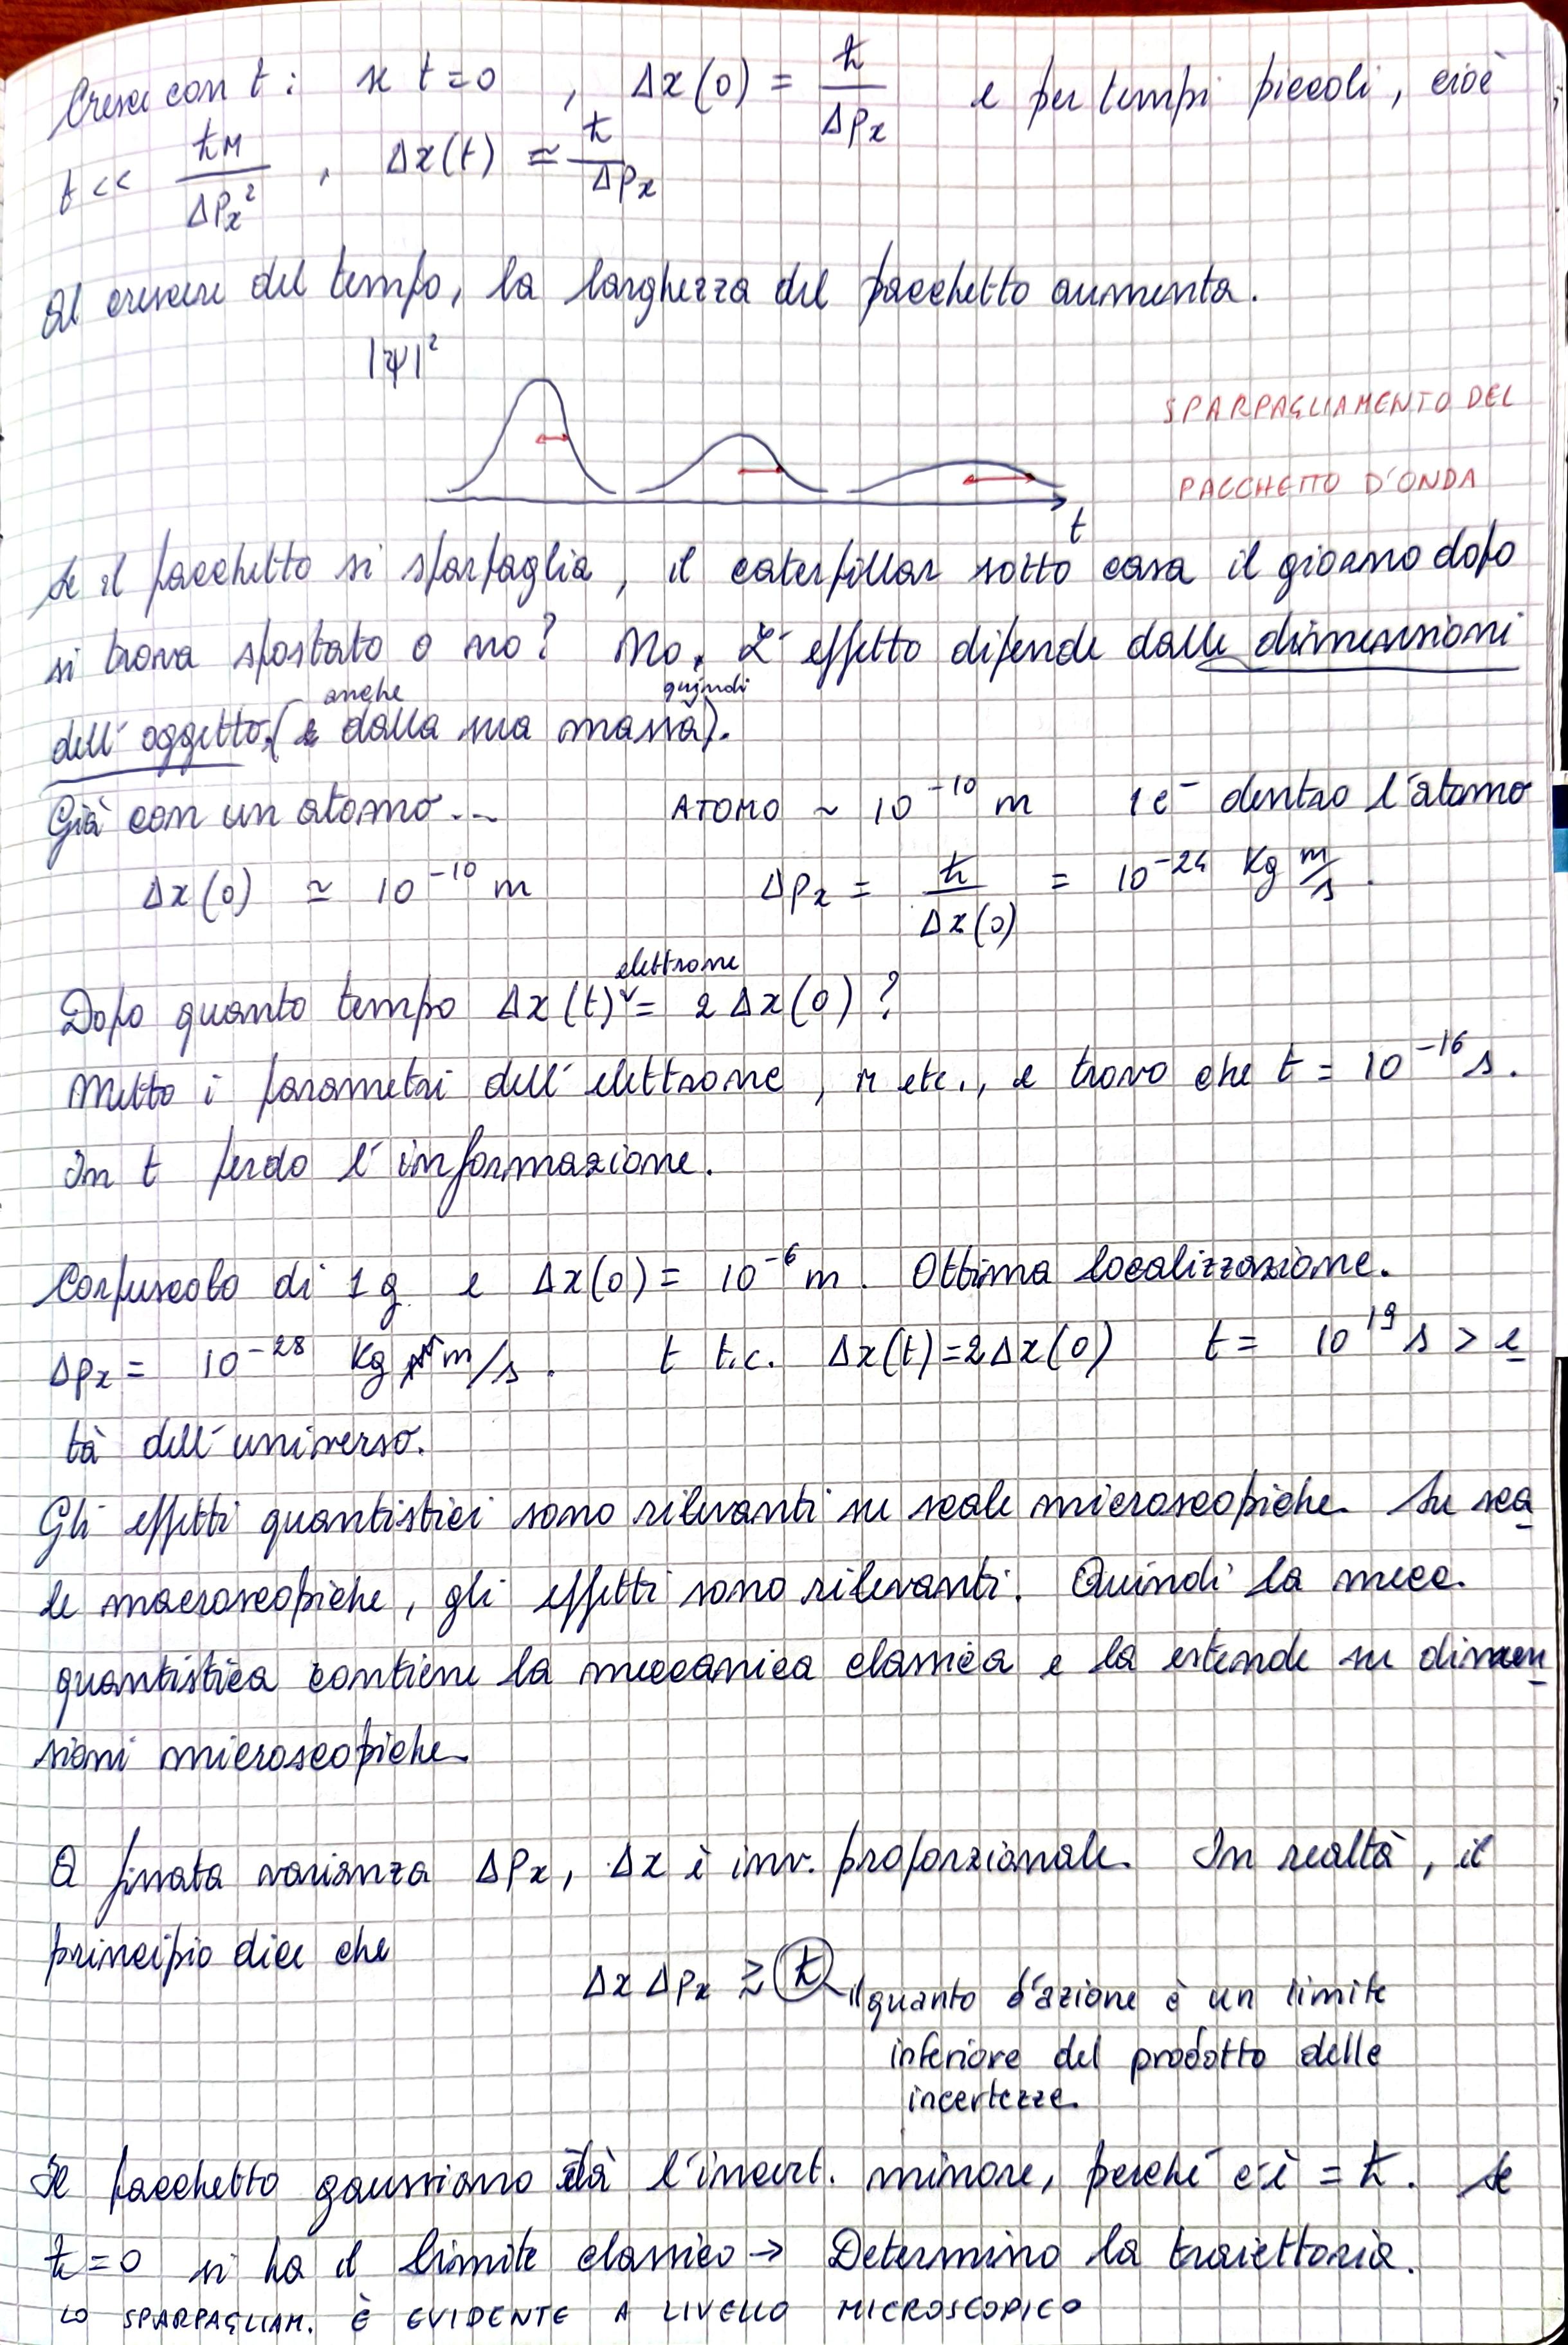 Cresce con t: se t=0, Δx(0) = ħ/Δpx e per tempi piccoli, cioè
t << ħM/ΔPx², Δx(t) ≃ ħ/Δpx
Al crescere del tempo, la larghezza del pacchetto aumenta.
|ψ|²
SPARPAGLIAMENTO DEL
PACCHETTO D'ONDA
t
Se il pacchetto si sparpaglia, il caterpillar sotto casa il giorno dopo
si trova spostato o no? No. L'effetto dipende dalle dimensioni
anche quindi
dell'oggetto (e dalla sua massa).
Già con un atomo... ATOMO ~ 10⁻¹⁰ m 1e⁻ dentro l'atomo
Δx(0) ≃ 10⁻¹⁰ m Δpx = ħ/Δx(0) = 10⁻²⁴ Kg m/s.
elettrone
Dopo quanto tempo Δx(t) = 2Δx(0)?
Metto i parametri dell'elettrone, M etc., e trovo che t = 10⁻¹⁶ s.
In t perdo l'informazione.
Corpuscolo di 1g e Δx(0) = 10⁻⁶ m. Ottima localizzazione.
Δpx = 10⁻²⁸ Kg m/s. t t.c. Δx(t)=2Δx(0) t = 10¹⁹ s > e
tà dell'universo.
Gli effetti quantistici sono rilevanti su scale microscopiche. Su sca
le macroscopiche, gli effetti sono rilevanti. Quindi la mecc.
quantistica contiene la meccanica classica e la estende su dimen
sioni microscopiche.
A fissata varianza Δpx, Δx è inv. proporzionale. In realtà, il
principio dice che
Δx Δpx ≳ ħ il quanto d'azione è un limite
inferiore del prodotto delle
incertezze.
Il pacchetto gaussiano dà l'incert. minore, perché c'è = ħ. Se
ħ=0 si ha il limite classico → Determino la traiettoria.
LO SPARPAGLIAM. È EVIDENTE A LIVELLO MICROSCOPICO